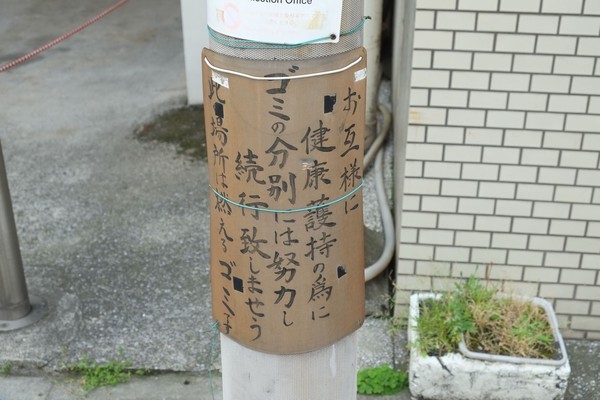 ection Office
お互様に
健康護持の為に
ゴミの分別には努力し
続行致しませう
此場所は燃えるゴミです